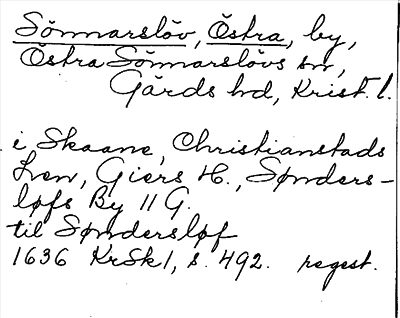 Sönnarslöv, Östra, by,
Östra Sönnarslövs sn,
Gärds hd, Krist. l.
i Skaane, Christianstads
Len, Giers H., Sønders-
løfs By 11 G.
til Sømdersløf
1636 KrSk1, s. 492. regest.